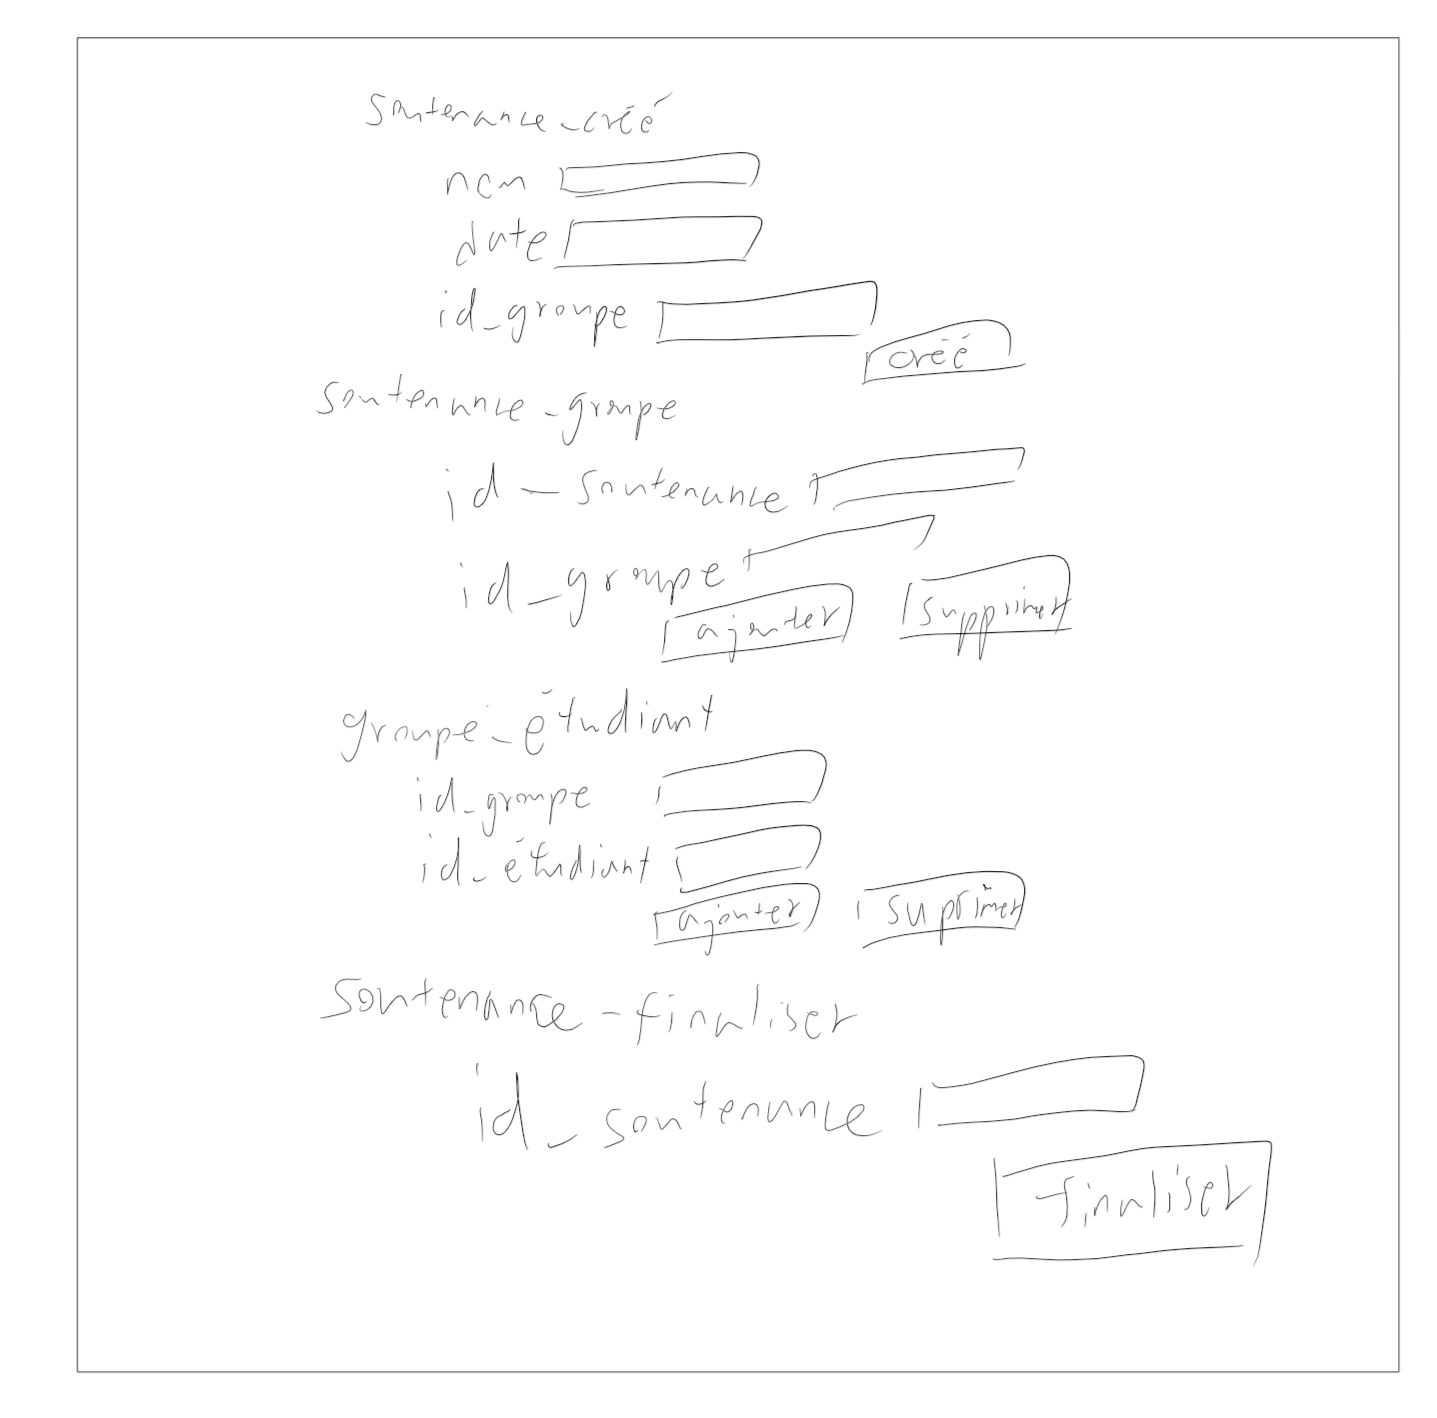 soutenance_créé
nom
date
id_groupe
créé
soutenance_groupe
id_soutenance
id_groupe
ajouter supprimer
groupe_étudiant
id_groupe
id_étudiant
ajouter suprimer
soutenance_finaliser
id_soutenance
finaliser